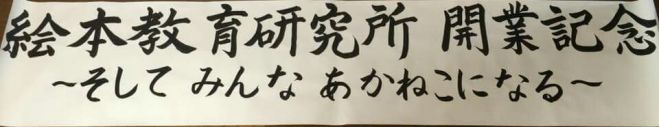 絵本教育研究所 開業記念
～そして みんな あかねこになる～